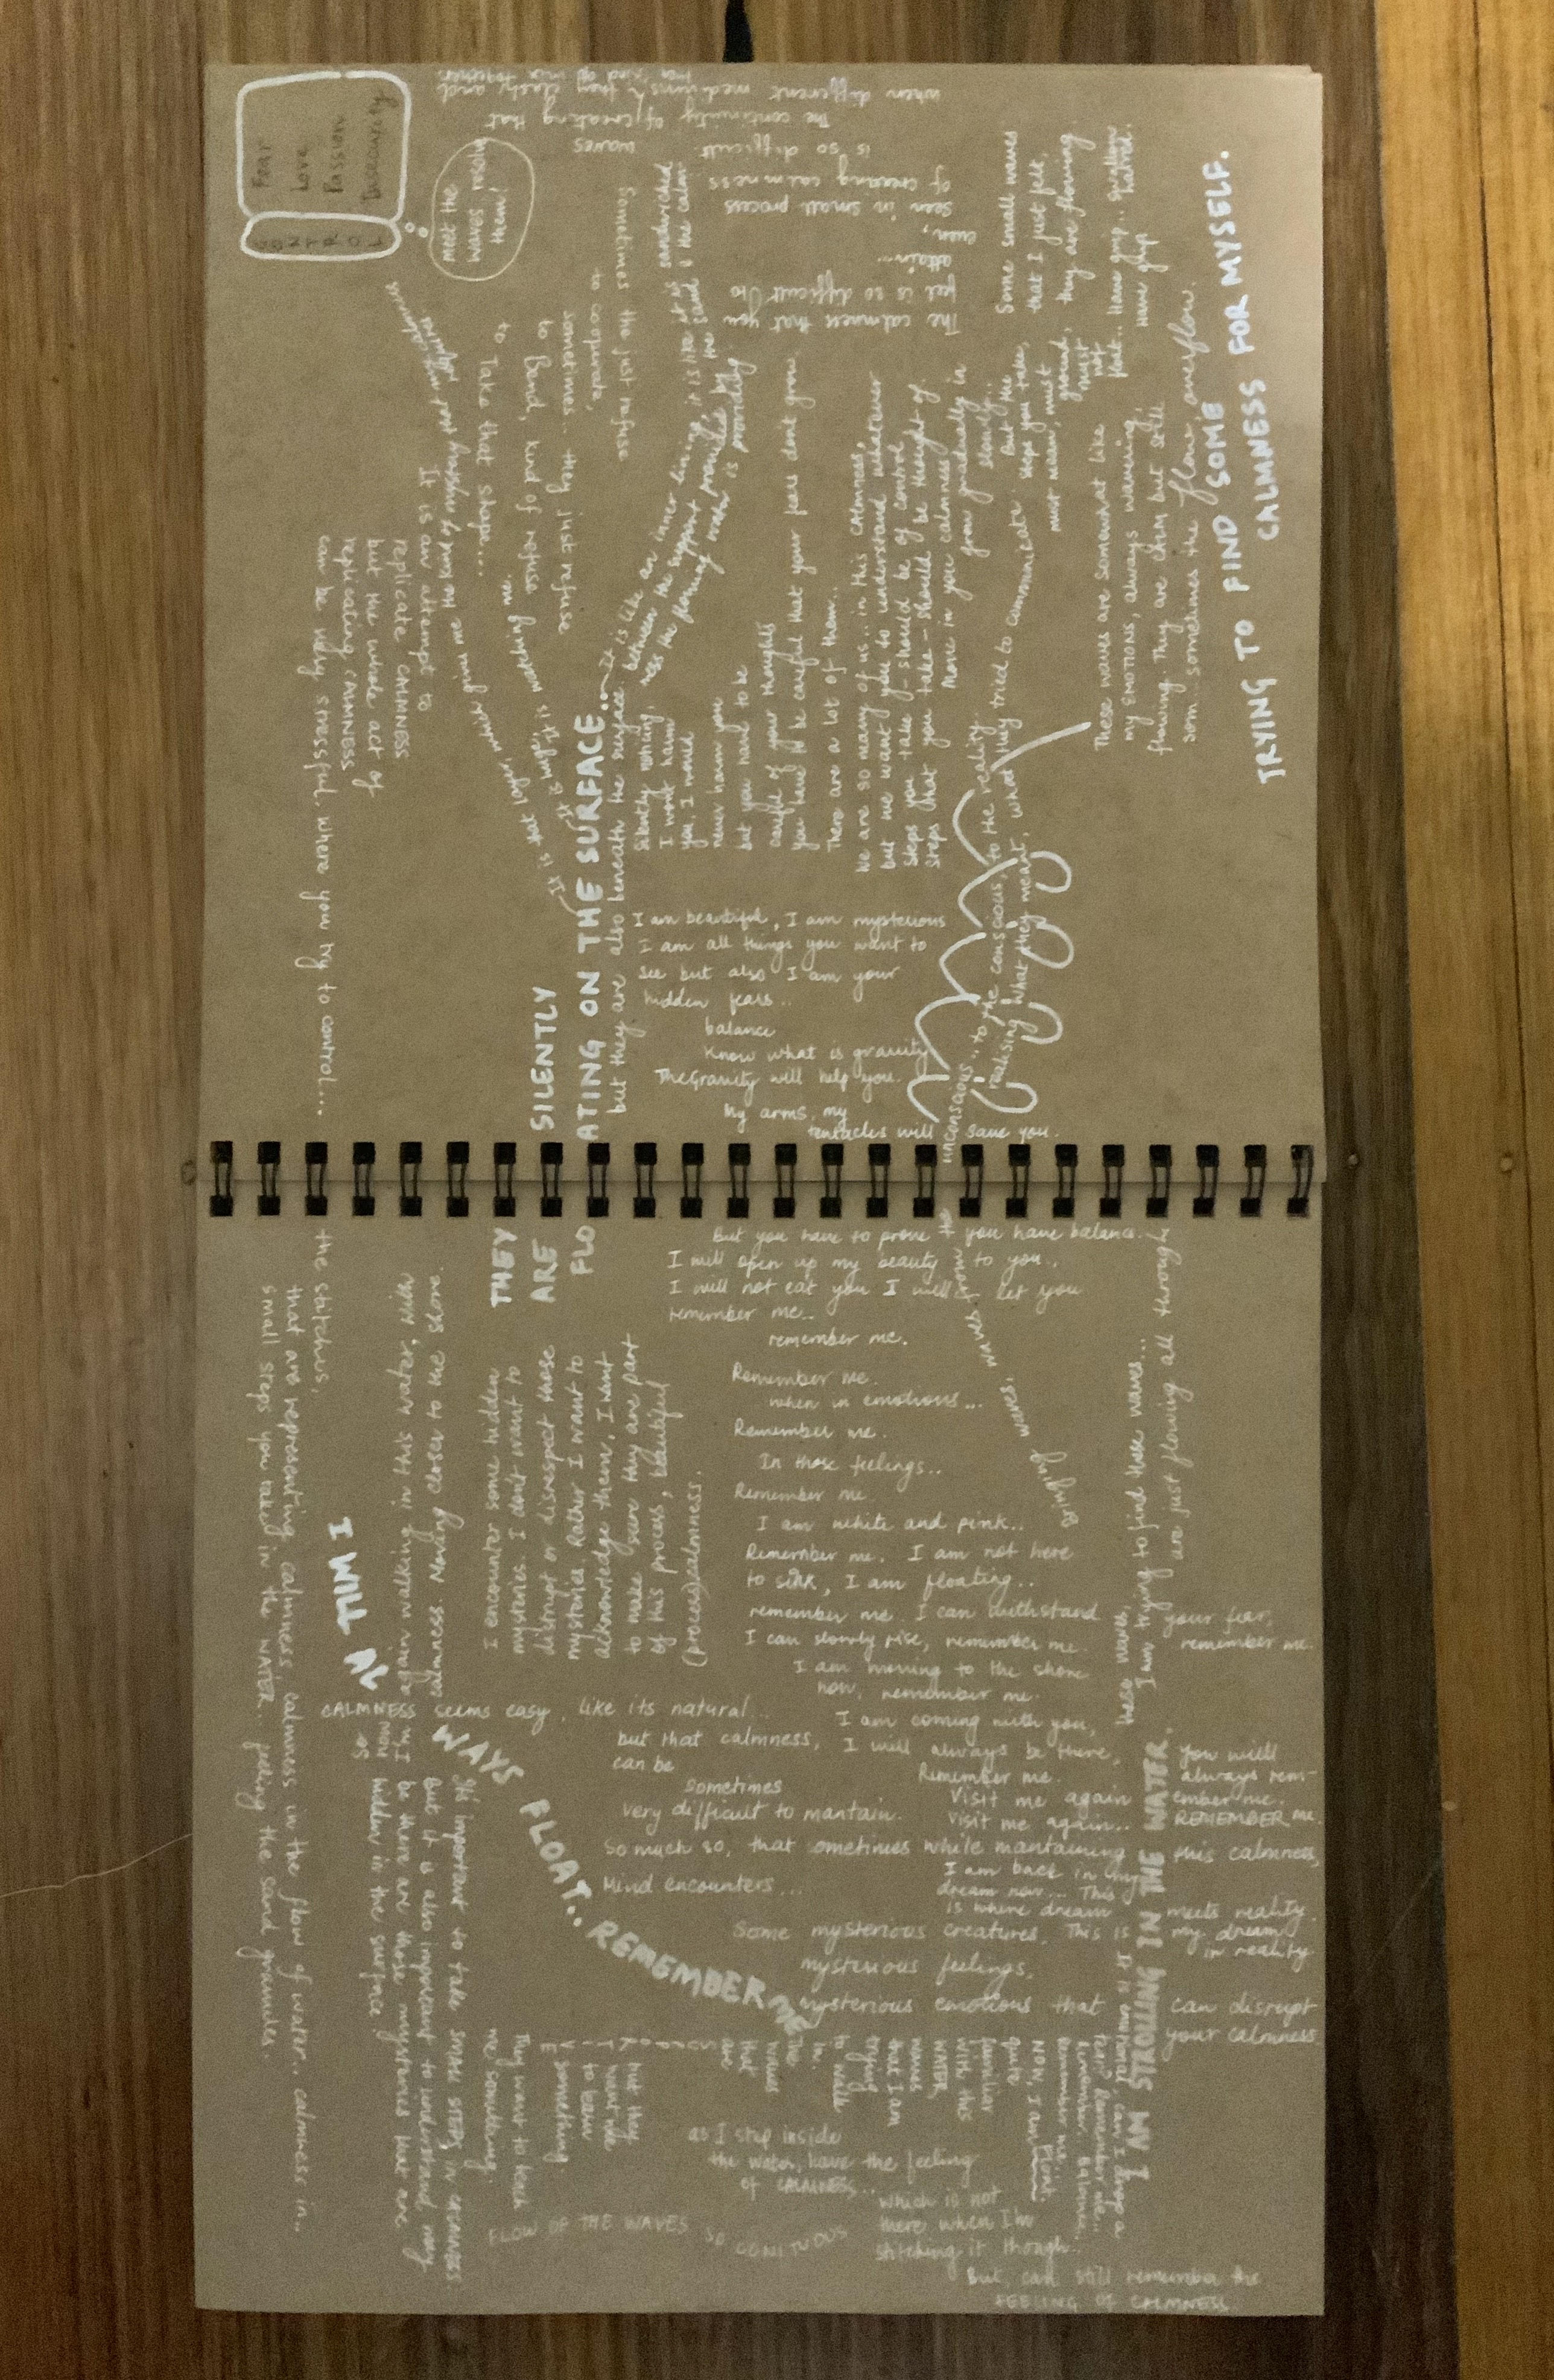 Fear
Love
Passion
Insecurity
CONTROL
meet the
waves resolve
them!
when different mediums, they clash and
kind of mix together
The continuity of creating that
waves
is so difficult
of creating calmness
seen in small process
even,
attain...
yet is so difficult to
The calmness that you
Some small waves
that I just felt,
they are flowing
Have grip..
have grip
TRYING TO FIND SOME
CALMNESS FOR MYSELF.
These waves are somewhat like
my EMOTIONS, always wavering
flowing. They are calm but still
som... sometimes they flow, overflow.
But the
steps you take,
must mean, must
ground,
must
not
felt..
Sometimes the just refuse
to cooperate,
sometimes.. they just refuse
to Bend, kind of refuse
to Take that shape...
It is an attempt to
replicate CALMNESS
but the whole act of
replicating CALMNESS
can be highly stressful. where you try to control....
the stitches,
that are representing calmness, calmness in the flow of water.. calmness in..
small steps you take, in the WATER... feeling the sand granules.
SILENTLY
THEY
ARE
FLOATING ON THE SURFACE...
but they are also beneath the surface
Silently moving,
I won't harm
you, I would
never harm you
but you have to be
careful of your thoughts
you have to be careful that your fears dont grow
There are a lot of them..
We are so many of us.. in this CALMNESS,
but we want you to understand whatever
steps you take – should be of control
steps that you take – should be thought of
Move in you calmness
flow gradually in
slowly..
It is like an inner lining, it is like it is sandwiched
between the support provided by the sand & the calm-
ness the flowing water is providing
It is high, it is watching me.
It is that layer, which gives me that kind of mystery
I am beautiful, I am mysterious
I am all things you want to
see but also I am your
hidden fears..
balance
Know what is gravity
The Gravity will help you.
My arms, my
tentacles will save you.
Bringing waves, waves from the unconscious.. to the conscious, to the reality
realising what they meant, what they tried to communicate
But you have to prove you have balance..
I will open up my beauty to you..
I will not eat you I will let you
remember me..
remember me.
Remember me.
when in emotions...
Remember me..
In those feelings..
Remember me.
I am white and pink..
Remember me. I am not here
to sink, I am floating..
remember me. I can withstand your fear,
I can slowly rise, remember me. remember me.
I am moving to the shore
now, remember me.
I am coming with you,
I will always be there, you will
Remember me. always rem-
Visit me again ember me.
Visit me again.. REMEMBER me.
I am back in my
dream now... This
is where dream meets reality
This is my dream
in reality
I encounter some hidden
mysteries. I don't want to
disrupt or disrespect those
mysteries. Rather I want to
acknowledge them, I want
to make sure they are part
of this process, beautiful
(process) calmness.
these waves,
I am trying to find these waves...
are just flowing all through
again walking in this water, with
calmness. Moving closer to the shore.
I WILL AL
WAYS FLOAT.. REMEMBER ME
CALMNESS seems easy, like its natural...
but that calmness,
can be
sometimes
very difficult to mantain.
So much so, that sometimes while mantaining this calmness,
Mind encounters...
Some mysterious creatures,
mysterious feelings,
mysterious emotions that can disrupt
your calmness
I AM STROLLING IN THE WATER.
so
now
I'm
It's important to take SMALL STEPS in CALMNESS.
But it is also important to understand, may
be there are those mysteries that are
hidden in the surface
NOW, I am
quite
familiar
with this
WATER
waves
but I am
trying
to walk
in
the
waves
that
are
SUPPORTIVE
but they
want me
to learn
something.
They want to teach
me something.
as I step inside
the water, have the feeling
of CALMNESS..
which is not
there when I'm
stitching it though..
But, can still remember the
FEELING OF CALMNESS.
FLOW OF THE WAVES SO CONITUOUS